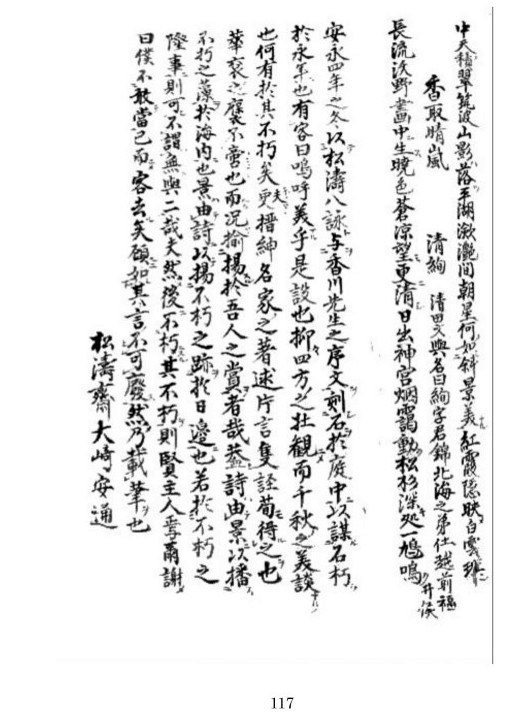 中天積翠筑波山影落平湖瀲灔間朝星何如斜景美紅霞隠映白鳥班
香取晴嵐　清絢
長流決野畵中生暁色蒼凉望更清日出神宮烟靄動松杉深処一鳩鳴
安永四年之冬以松濤八詠与香川先生之序文刻石於庭中以謀石朽
於永年也有客曰嗚呼美乎是設也抑四方之壮観而千秋之美談
也何有於其不朽矣夫更搢紳名家之著述片言隻誣荀得之也
華袞之襃不啻也而況揄揚於吾人之賞者哉蓋詩由景以播
不朽之藻於海内也景由詩以揚不朽之跡於日邉也若於不朽之
隆事則可不謂無與二哉夫然後不朽其不朽則賢主人莞爾謝
曰僕不敢當已而客去矣顧如其言不可廢然乃載筆也
松濤齋大﨑安通
117